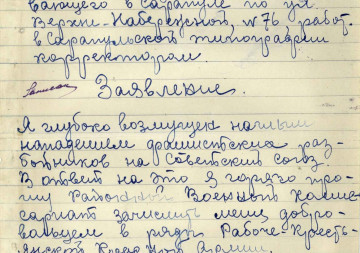 вающего в Сарапуле по ул.
Верхне-Набережной, № 76, работ.
в Сарапульской типографии
корректором.
Заявление.
Я глубоко возмущен наглым
нападением фашистских раз-
бойников на Советский Союз.
В ответ на это я горячо про-
шу Районный Военный Комис-
сариат зачислить меня добро-
вольцем в ряды Рабоче-Кресть-
янской Красной Армии.